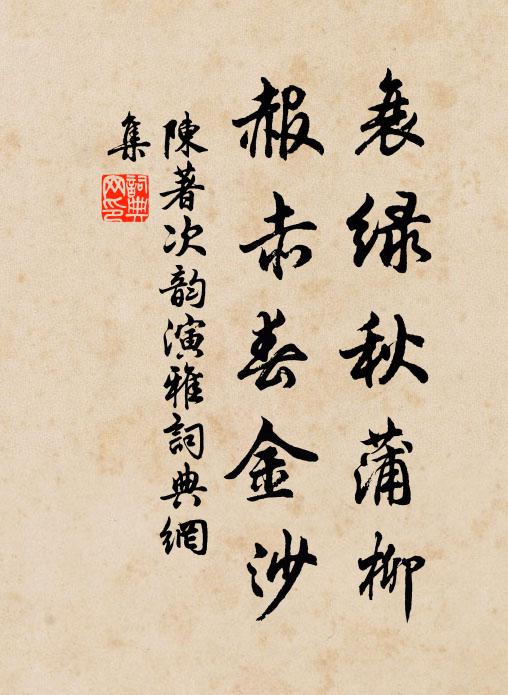 衰绿秋蒲柳
赧赤春金沙
陳著次韵演雅詞典網
集
詞典
网